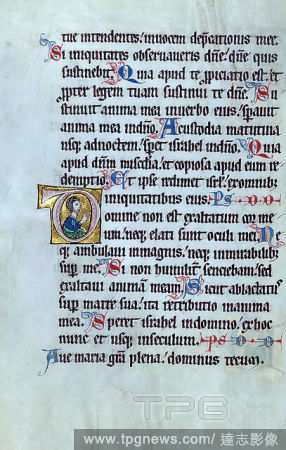 tue intendentes. in uocem dep̄cationis mee.
Si iniquitates obseruaueris dñe: dñe quis
sustinebit. Quia apud te p̄piciatio est. et
p̄pter legem tuam sustinui te dñe. Su
stinuit anima mea in uerbo eius. spauit
anima mea in dño. A custodia matutina
usq; ad noctem. spet israhel in dño. Quia
apud dñm mis̄cdia. et copiosa apud eum re
demptio. Et ipse redimet isrl. ex omnib;
iniquitatibus eius. ps
Domine non est exaltatum cor me
um. neq; elati sunt oculi mei. Ne
q; ambulaui in magnis. neq; in mirabilib;
sup me. Si non humilit̄ sentiebam. sed
exaltaui animam meam. Sicut ablactatus
sup matre sua. ita retributio in anima
mea. Speret israhel in domino. ex hoc
nunc et usq; in seculum. ps
Aue maria grā plena. dominus tecum.
TPG
www.tpgnews.com / 達志影像